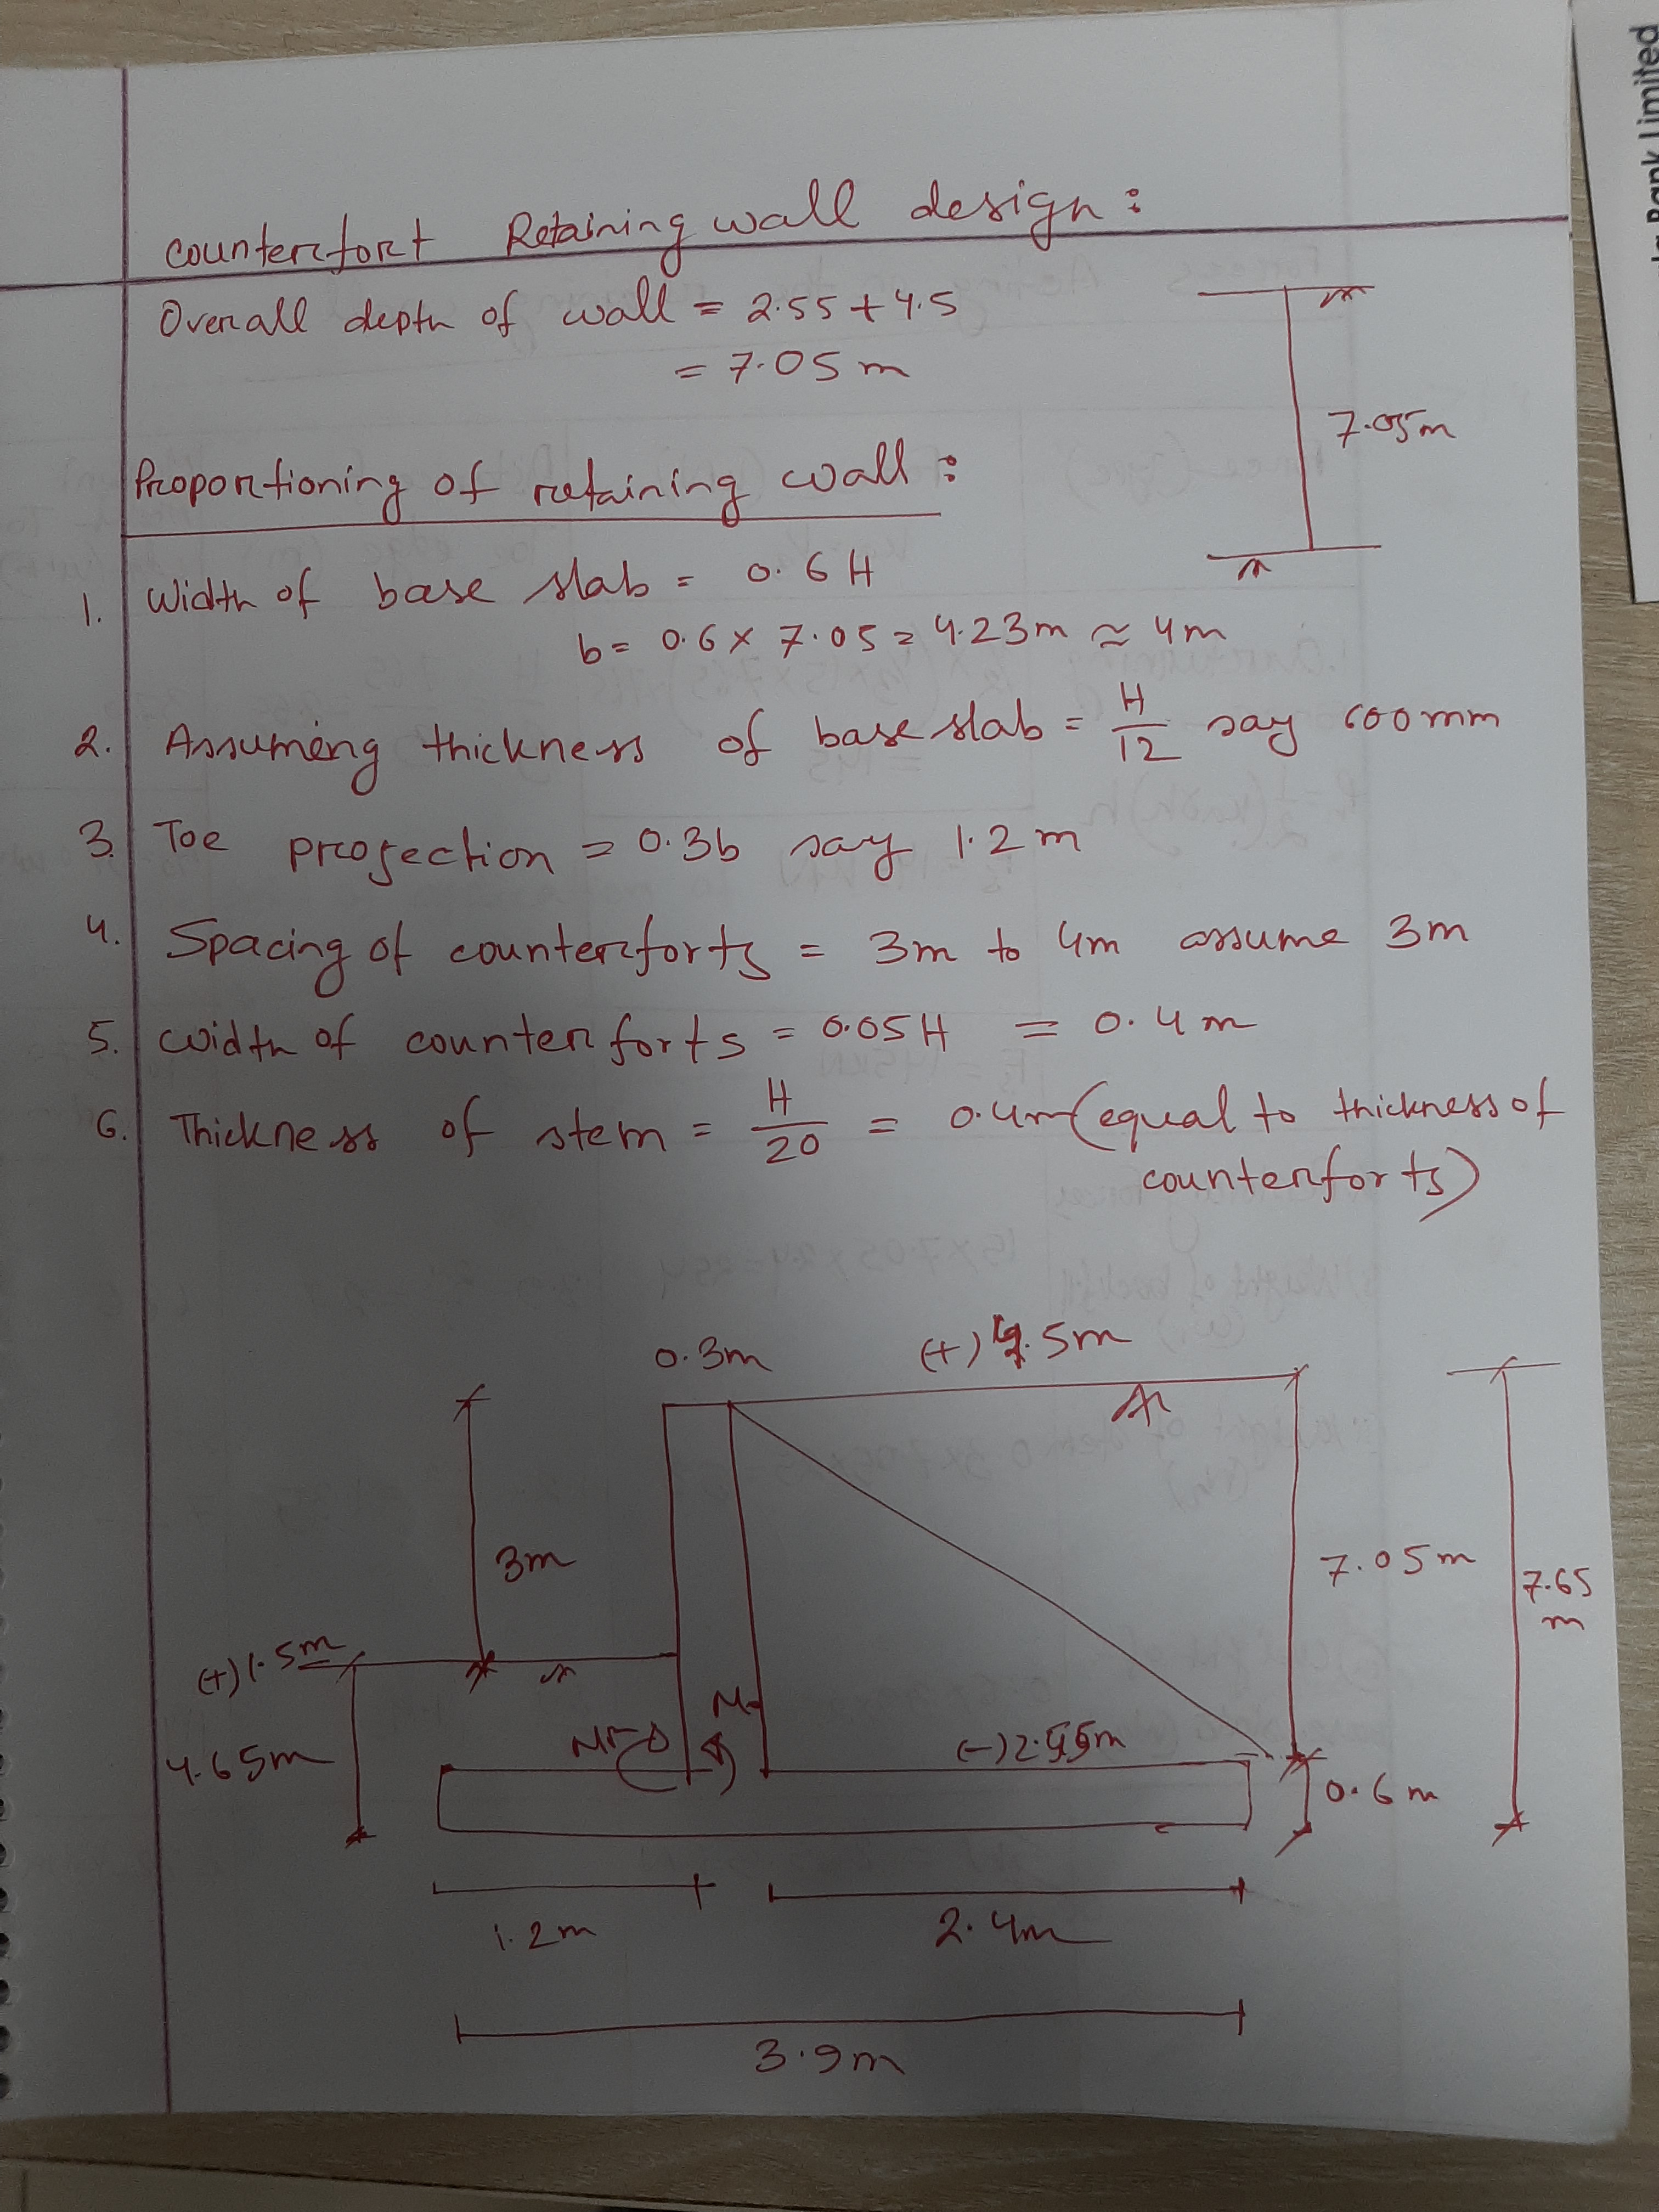 Bank Limited
Counterfort Retaining wall design:
Overall depth of wall = 2.55 + 4.5
= 7.05 m
7.05m
Proportioning of retaining wall:
1. Width of base slab = 0.6 H
b = 0.6 × 7.05 = 4.23m ≈ 4m
2. Assuming thickness of base slab = H/12 say 600mm
3. Toe projection = 0.3b say 1.2 m
4. Spacing of counterforts = 3m to 4m assume 3m
5. Width of counterforts = 0.05H = 0.4 m
6. Thickness of stem = H/20 = 0.4m (equal to thickness of
counterforts)
0.3m (+) 4.5m
3m
7.05m
7.65
m
(+) 1.5m
4.65m
(-) 2.55m
0.6 m
1.2m
2.4m
3.9m